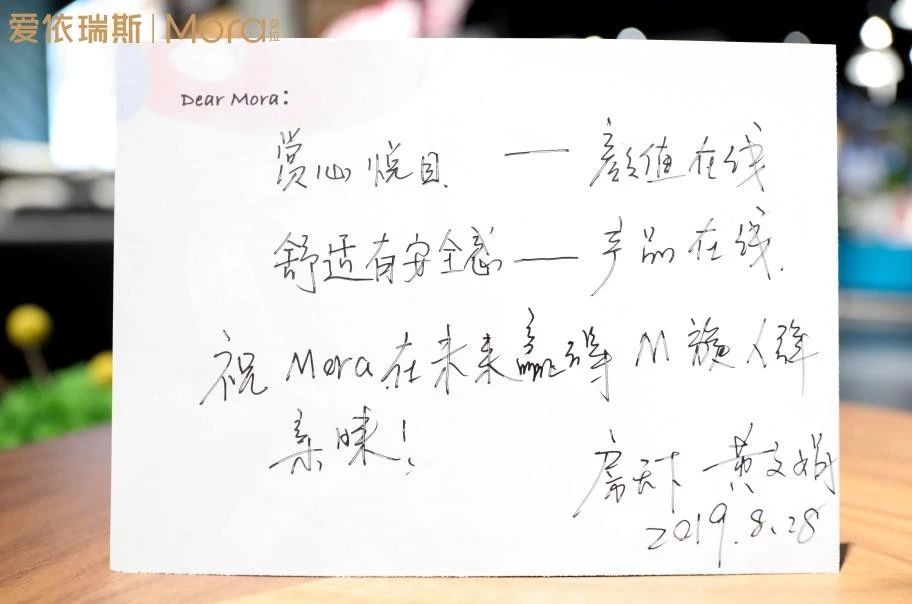 爱依瑞斯|Mora摩拉
Dear Mora:
赏心悦目 — 颜值在线
舒适有安全感 — 产品在线.
祝Mora在未来赢得M族人群
亲睐!
房天下 黄文娟
2019.8.28